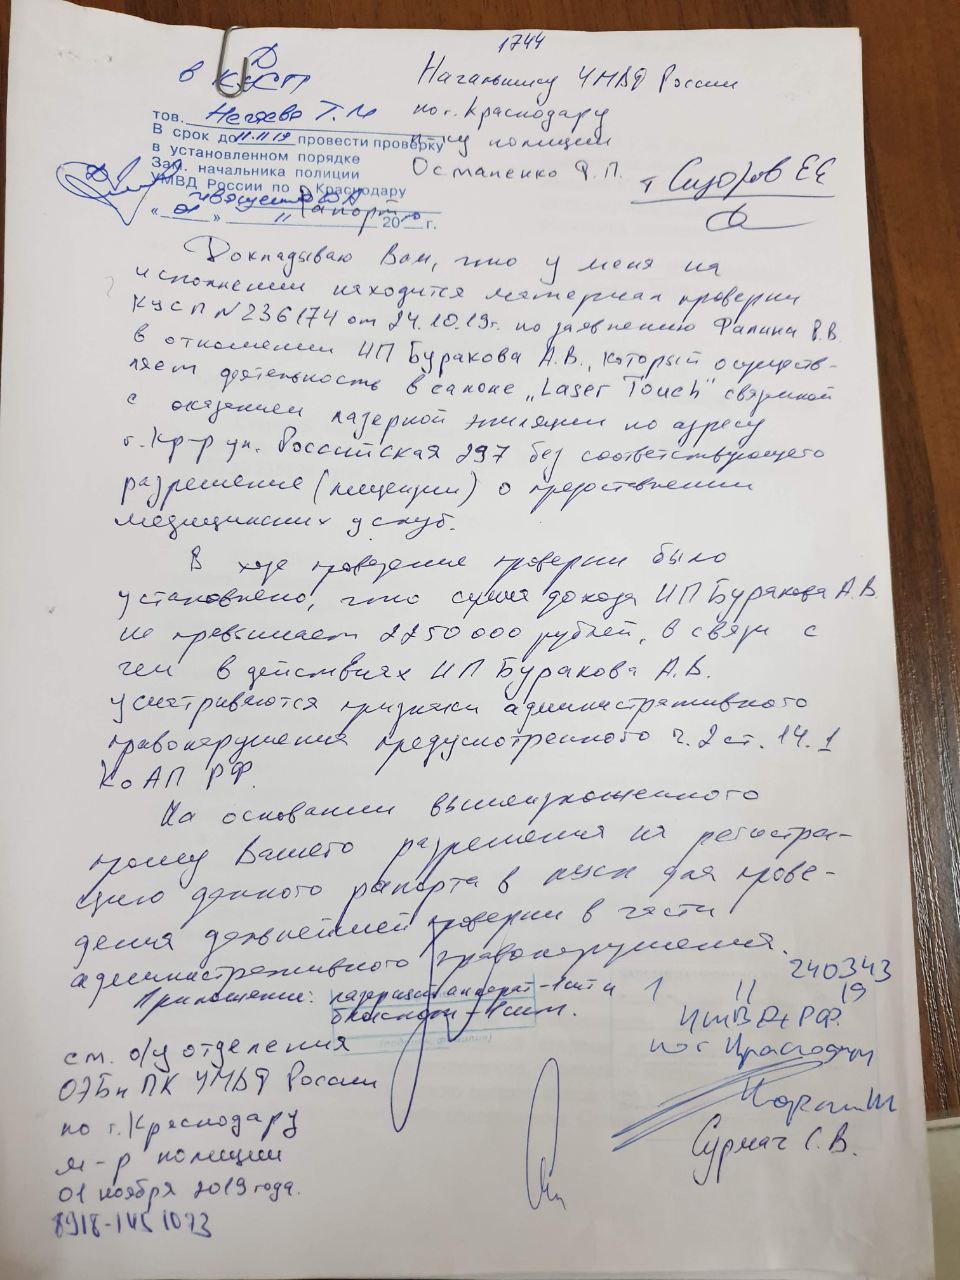 1744
в КУСП
Начальнику УМВД России
по г. Краснодару
п-ку полиции
Остапенко Д.П.
тов. Негляева Т.М
В срок до 11.11.19 провести проверку
в установленном порядке
Зам. начальника полиции
УМВД России по г. Краснодару
« 01 » 11 20 г.
т Сидоров ЕЕ
Рапорт
Докладываю Вам, что у меня на
исполнении находится материал проверки
КУСП №236174 от 24.10.19г. по заявлению Фалина В.В.
в отношении ИП Буракова А.В., который осуществ-
ляет деятельность в салоне „Laser Touch" связанной
с оказанием лазерной эпиляции по адресу
г. Кр-р ул. Российская 297 без соответствующего
разрешения (лицензии) о предоставлении
медицинских услуг.
В ходе проведения проверки было
установлено, что сумма дохода ИП Буракова А.В.
не превышает 2250000 рублей, в связи с
чем в действиях ИП Буракова А.В.
усматриваются признаки административного
правонарушения предусмотренного ч.2 ст. 14.1
КоАП РФ.
На основании вышеизложенного
прошу Вашего разрешения на регистра-
цию данного рапорта в КУСП для прове-
дения дальнейшей проверки в части
административного правонарушения.
Приложение: лазерный аппарат - 1 шт и
блокнот - 1 шт.
240343
1 11 19
УМВД РФ
по г Краснодару
см. о/у отделения
ОЭБ и ПК УМВД России
по г. Краснодару
м-р полиции
Сурмач С.В.
01 ноября 2019 года.
8918-145 1073